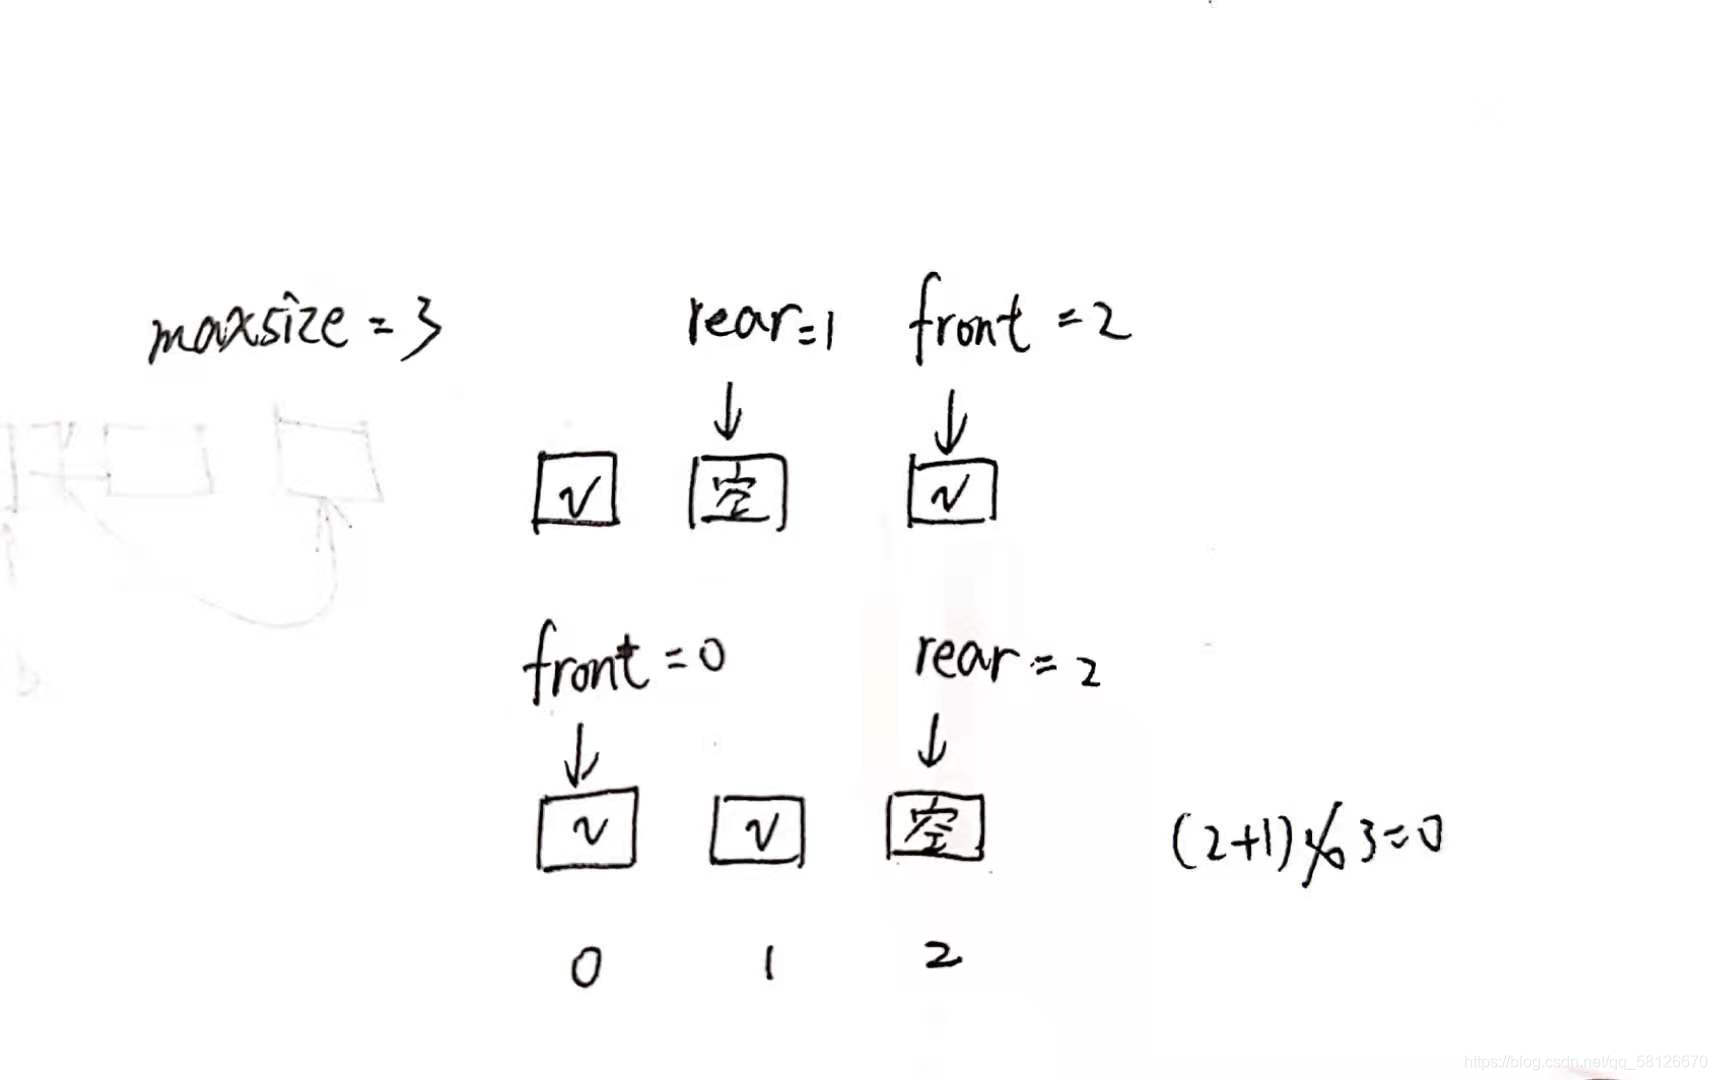 maxsize = 3 rear=1 front = 2
√ 空 √
front = 0 rear = 2
√ √ 空 (2+1) % 3 = 0
0 1 2
https://blog.csdn.net/qq_58126670